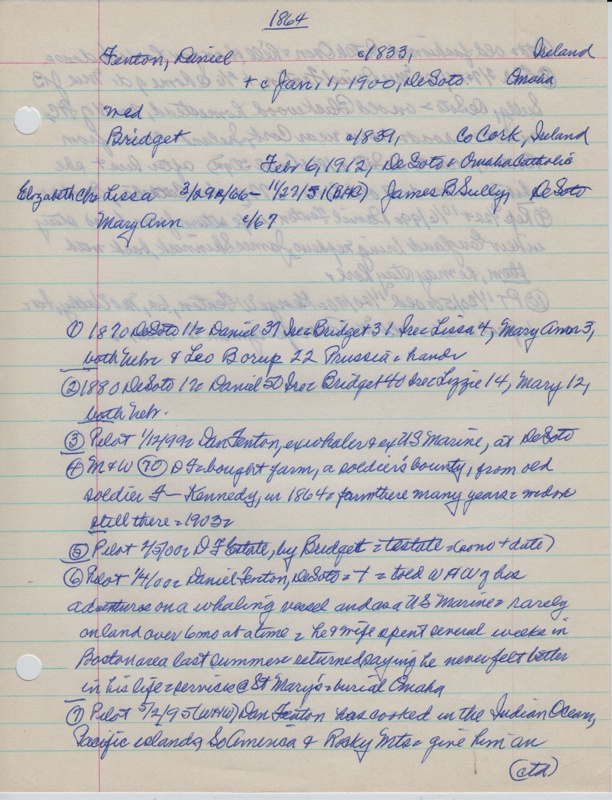 1864
Fenton, Daniel c1833, Ireland
+ c Jan 1, 1900, DeSoto Omaha
med
Bridget c1839, Co Cork, Ireland
Feb 6, 1912, DeSoto + Omaha Catholic
Elizabeth Lissa 3/29 /66 - 11/27/51 James B Sully, DeSoto
Mary Ann c/67
① 1870 DeSoto 11= Daniel 37 Ire= Bridget 31 Ire= Lissa 4, Mary Ann 3,
both Nebr & Leo Borup 22 Prussia = hand=
② 1880 DeSoto 12= Daniel 50 Ire= Bridget 40 Ire= Lizzie 14, Mary 12,
both Nebr.
③ Pilot 1/12/99= Dan Fenton, exwhaler & ex US Marine, at DeSoto
④ M&W 70 D F= bought farm, a soldier's bounty, from old
soldier F— Kennedy, in 1864= farm there many years=
still there = 1903=
⑤ Pilot 2/5/00= D F Estate, by Bridget = testate = (cono + date)
⑥ Pilot 1/4/00= Daniel Fenton, DeSoto = + = told WHW of his
adventures on a whaling vessel and as a US Marine= rarely
on land over 6 mo at a time = he & wife spent several weeks in
Boston area last summer= returned saying he never felt better
in his life= services @ St Mary's= burial Omaha
⑦ Pilot 5/2/95 (WHW) Dan Fenton has cooked in the Indian Ocean,
Pacific islands, So America & Rocky Mts= give him an
(ctd)